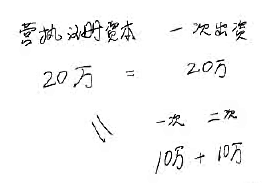 营执注册资本 一次出资
20万 = 20万
一次 二次
10万 + 10万